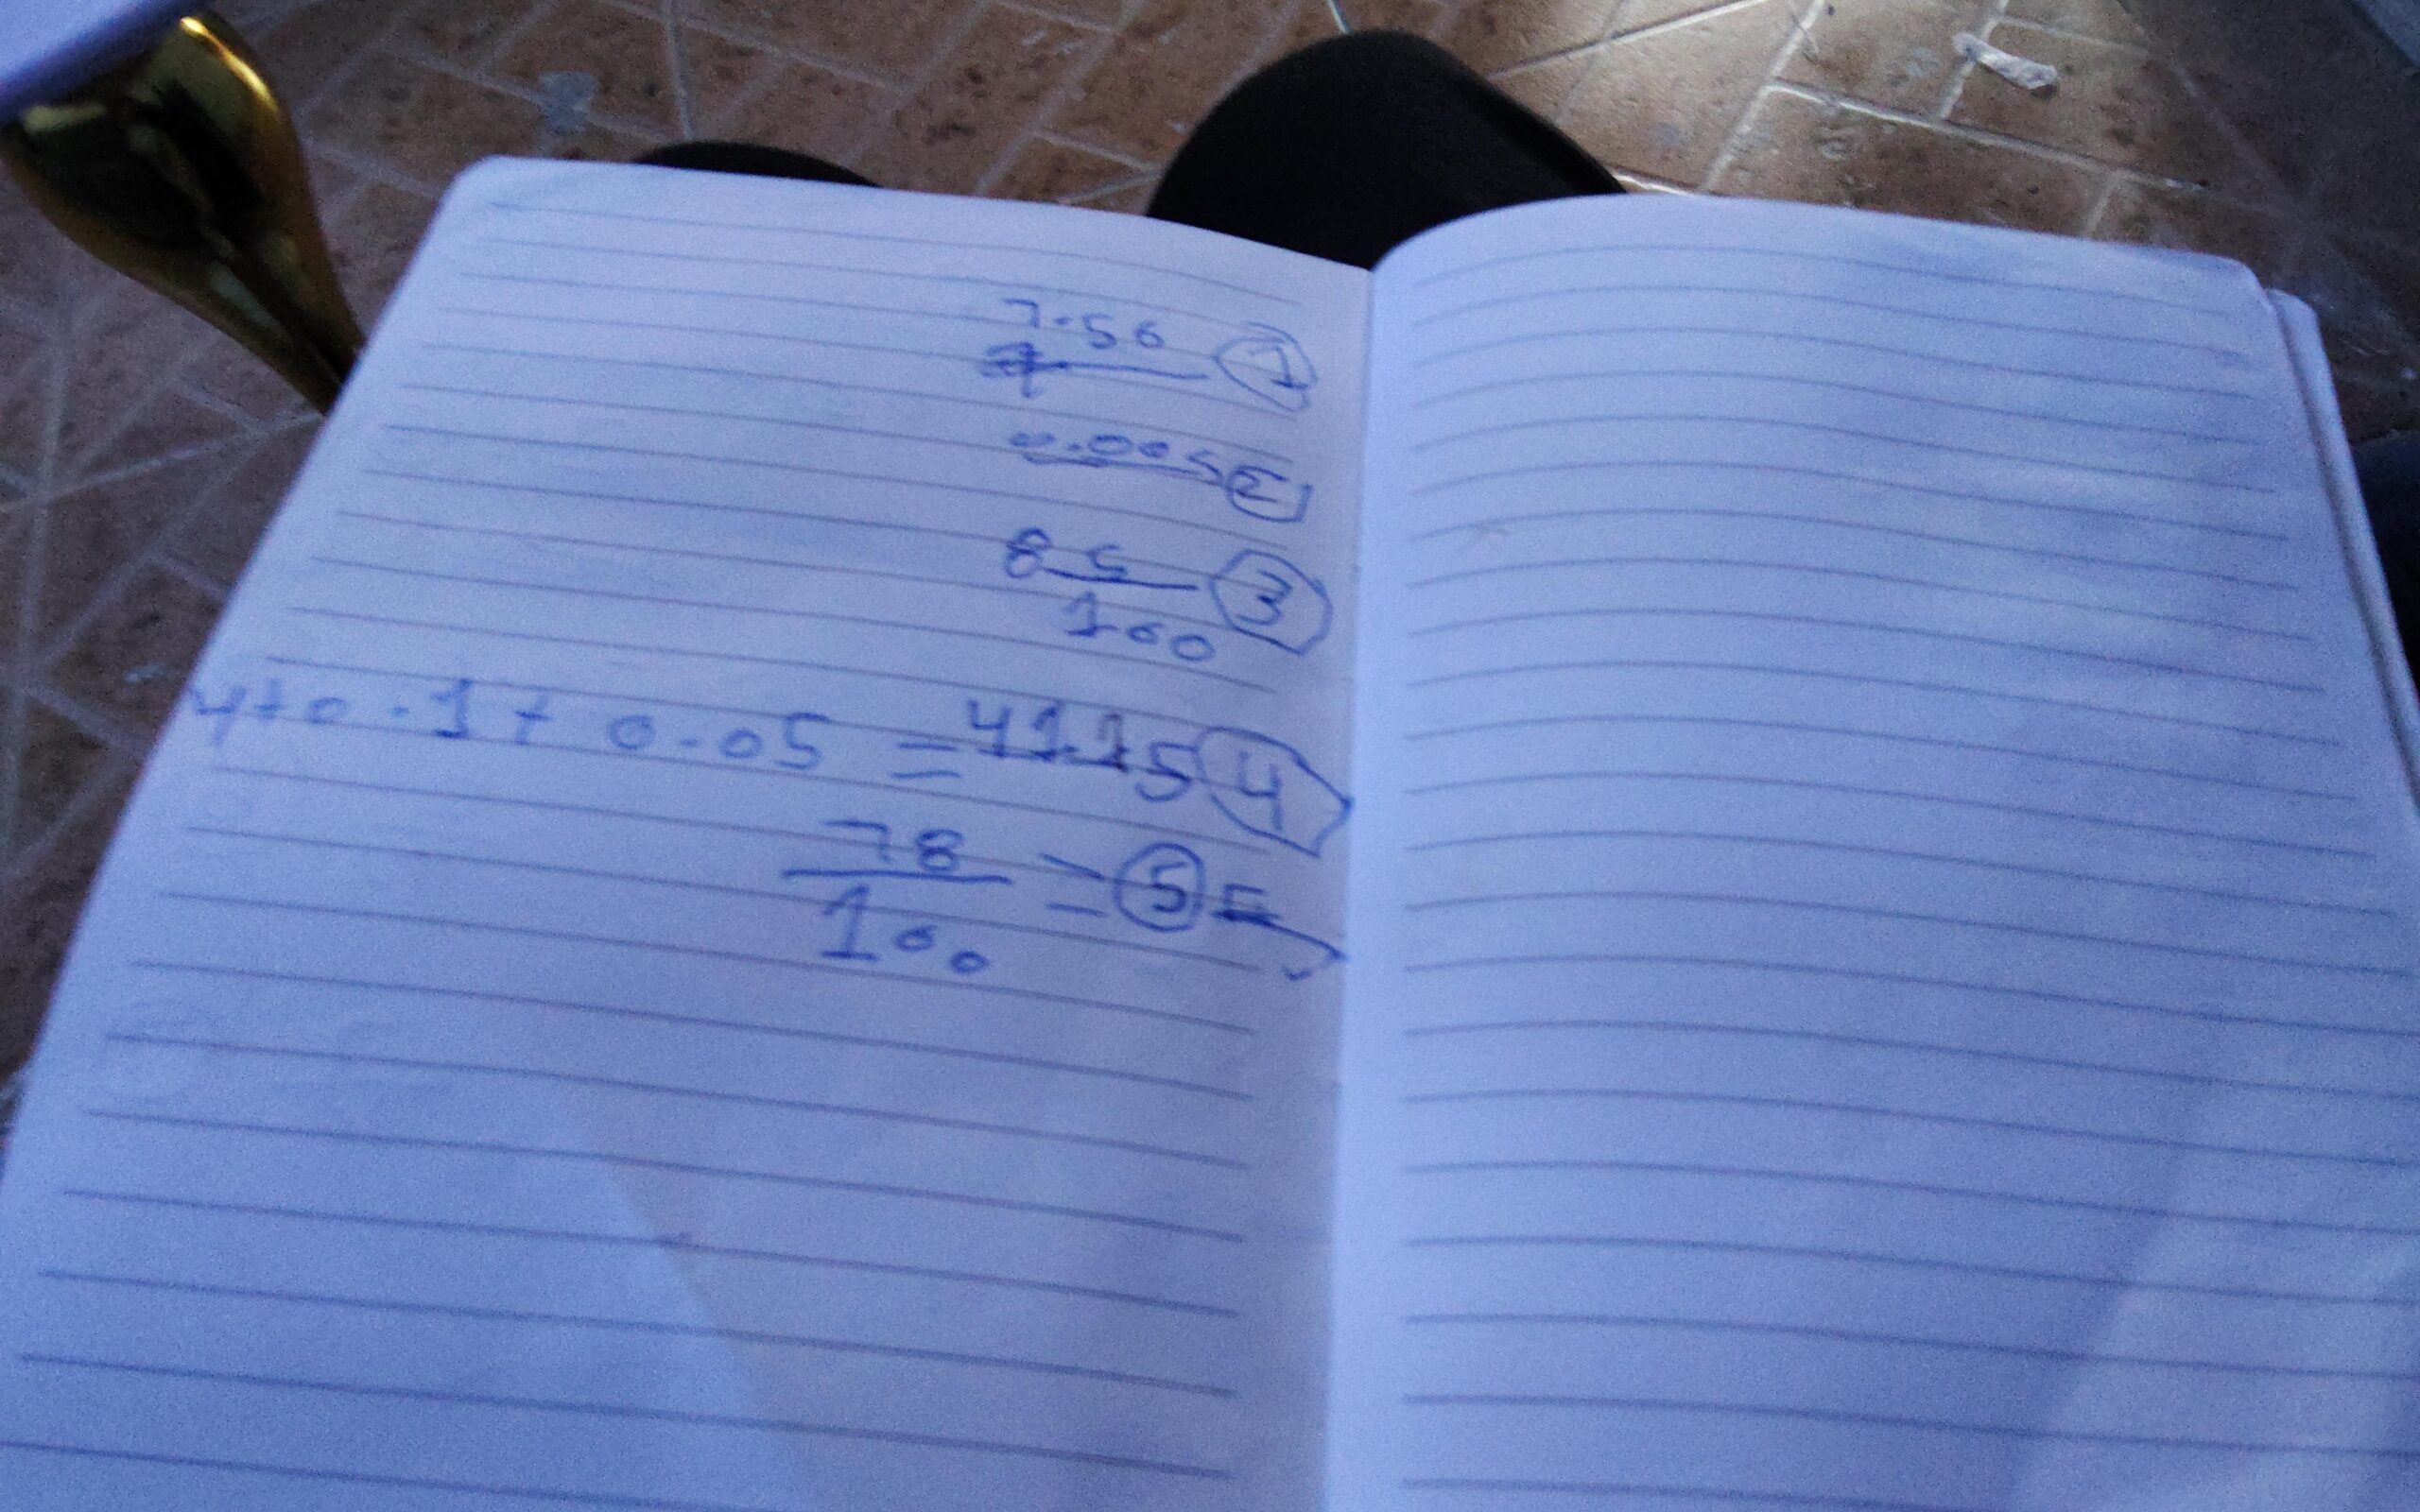 7.56 1
0.005 2
85 3
100
4+0.1+0.05 = 4115 4
78 = 5
100